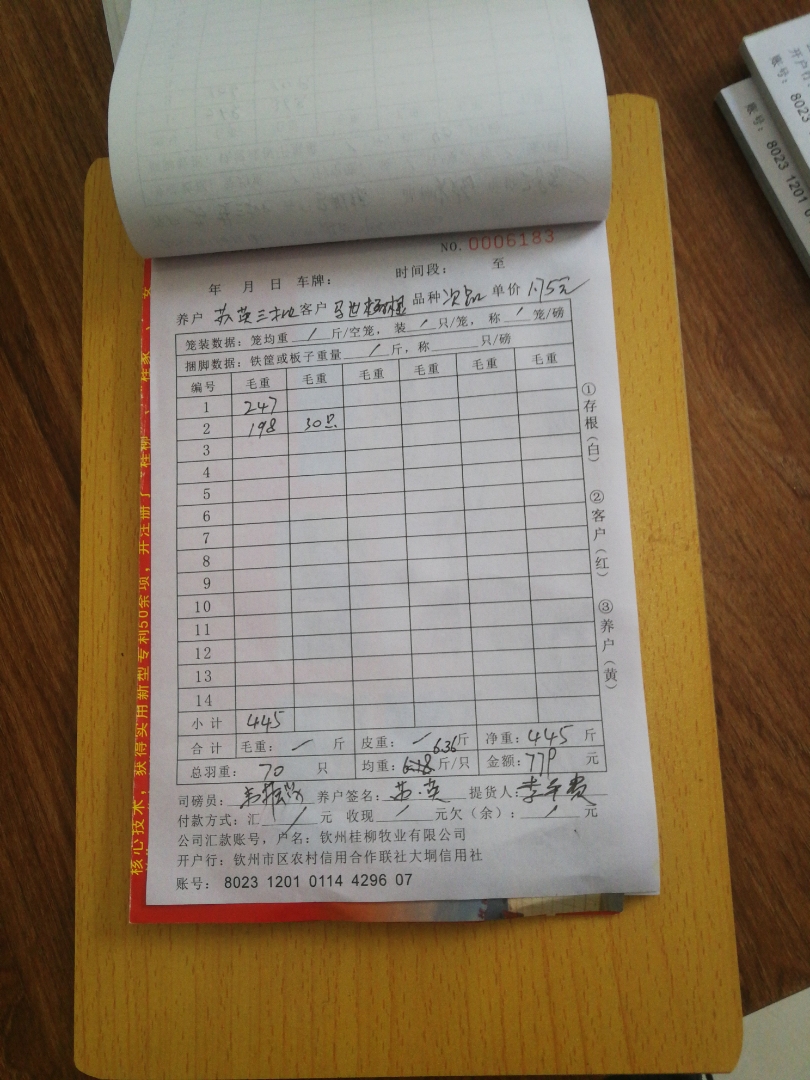 NO. 0006183
年 月 日 车牌： 时间段： 至
养户 苏英三批 客户 品种 次品 单价 1.75元
笼装数据：笼均重 / 斤/空笼，装 / 只/笼，称 / 笼/磅
捆脚数据：铁筐或板子重量 / 斤，称 只/磅
编号 毛重 毛重 毛重 毛重 毛重 毛重
1 247
2 198 30只
3
4
5
6
7
8
9
10
11
12
13
14
小计 445
合计 毛重： / 斤 皮重： / 斤 净重：445 斤
总羽重： 70 只 均重： 6.36 斤/只 金额：779 元
司磅员： 养户签名：苏英 提货人：
付款方式：汇 / 元 收现 / 元欠（余）： / 元
公司汇款账号，户名：钦州桂柳牧业有限公司
开户行：钦州市区农村信用合作联社大垌信用社
账号： 8023 1201 0114 4296 07
①存根（白）
②客户（红）
③养户（黄）
核心技术，获得实用新型专利50余项，并注册了
账号： 8023 1201 0
开户行
账号： 8023